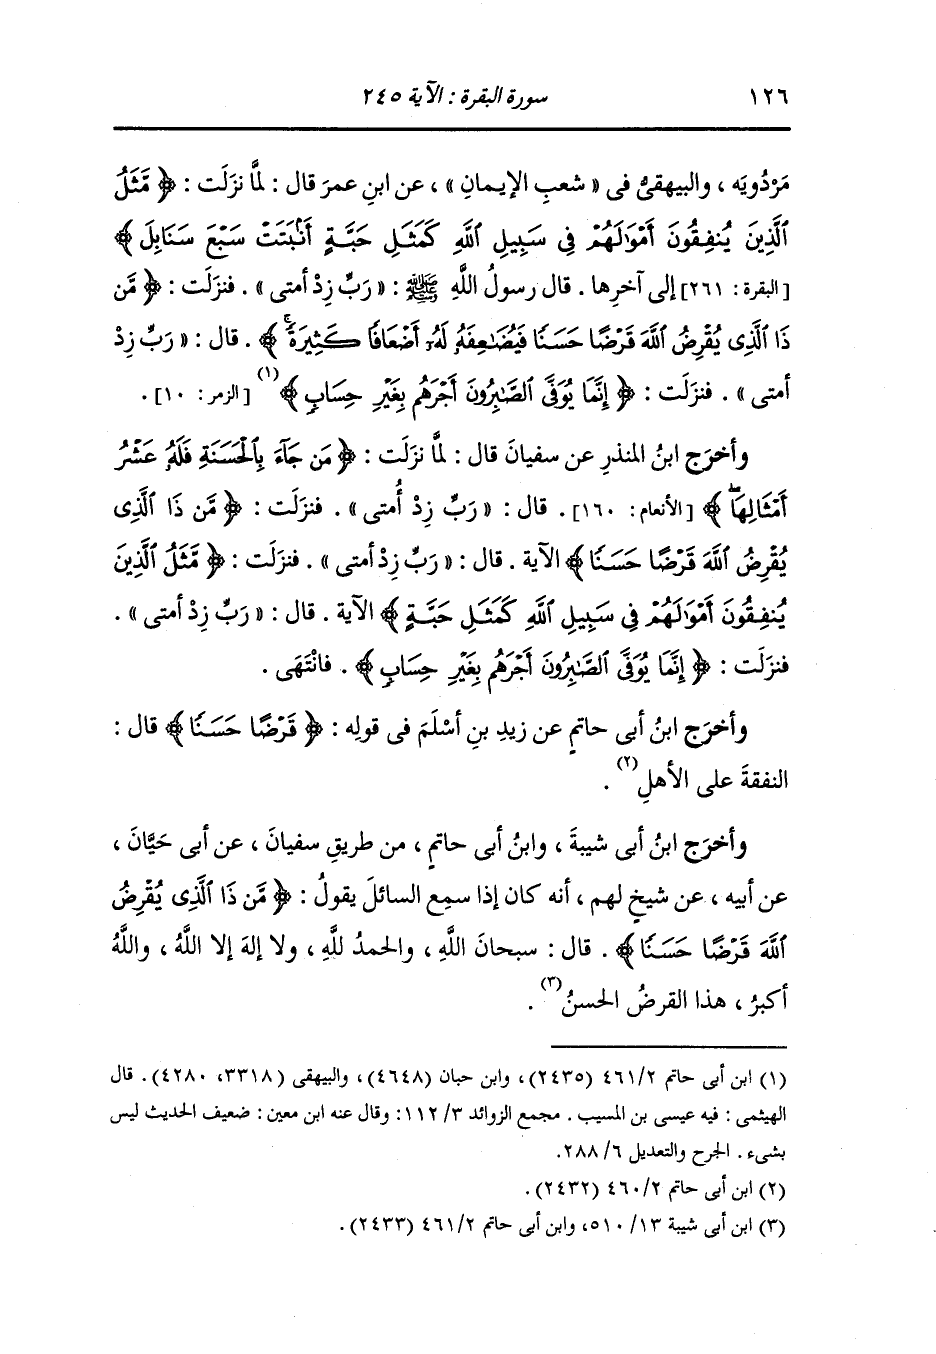 ١٢٦ سورة البقرة : الآية ٢٤٥
مَرْدُويَه ، والبيهقىُّ فى « شعبِ الإيمانِ » ، عن ابنِ عمرَ قال : لمَّا نزَلَت : ﴿ مَّثَلُ
ٱلَّذِينَ يُنفِقُونَ أَمْوَٰلَهُمْ فِى سَبِيلِ ٱللَّهِ كَمَثَلِ حَبَّةٍ أَنۢبَتَتْ سَبْعَ سَنَابِلَ ﴾
[البقرة : ٢٦١] إلى آخرِها . قال رسولُ اللَّهِ ﷺ : « رَبِّ زِدْ أمتى » . فنزَلَت : ﴿ مَّن
ذَا ٱلَّذِى يُقْرِضُ ٱللَّهَ قَرْضًا حَسَنًا فَيُضَٰعِفَهُۥ لَهُۥٓ أَضْعَافًا كَثِيرَةًۚ ﴾ . قال : « رَبِّ زِدْ
أمتى » . فنزَلَت : ﴿ إِنَّمَا يُوَفَّى ٱلصَّٰبِرُونَ أَجْرَهُم بِغَيْرِ حِسَابٍ ﴾(١) [الزمر : ١٠] .
وأخرَج ابنُ المنذرِ عن سفيانَ قال : لمَّا نزَلَت : ﴿ مَن جَآءَ بِٱلْحَسَنَةِ فَلَهُۥ عَشْرُ
أَمْثَالِهَاۖ ﴾ [الأنعام : ١٦٠] . قال : « رَبِّ زِدْ أُمتى » . فنزَلَت : ﴿ مَّن ذَا ٱلَّذِى
يُقْرِضُ ٱللَّهَ قَرْضًا حَسَنًا ﴾ الآية . قال : « رَبِّ زِدْ أمتى » . فنزَلَت : ﴿ مَّثَلُ ٱلَّذِينَ
يُنفِقُونَ أَمْوَٰلَهُمْ فِى سَبِيلِ ٱللَّهِ كَمَثَلِ حَبَّةٍ ﴾ الآية . قال : « رَبِّ زِدْ أمتى » .
فنزَلَت : ﴿ إِنَّمَا يُوَفَّى ٱلصَّٰبِرُونَ أَجْرَهُم بِغَيْرِ حِسَابٍ ﴾ . فانْتَهَى .
وأخرَج ابنُ أبى حاتمٍ عن زيدِ بنِ أَسْلَمَ فى قولِه : ﴿ قَرْضًا حَسَنًا ﴾ قال :
النفقةَ على الأهلِ(٢) .
وأخرَج ابنُ أبى شيبةَ ، وابنُ أبى حاتمٍ ، من طريقِ سفيانَ ، عن أبى حَيَّانَ ،
عن أبيه ، عن شيخٍ لهم ، أنه كان إذا سمِع السائلَ يقولُ : ﴿ مَّن ذَا ٱلَّذِى يُقْرِضُ
ٱللَّهَ قَرْضًا حَسَنًا ﴾ . قال : سبحانَ اللَّهِ ، والحمدُ للَّهِ ، ولا إلهَ إلا اللَّهُ ، واللَّهُ
أكبرُ ، هذا القرضُ الحسنُ(٣) .
(١) ابن أبى حاتم ٤٦١/٢ (٢٤٣٥) ، وابن حبان (٤٦٤٨) ، والبيهقى (٣٣١٨، ٤٢٨٠) . قال
الهيثمى : فيه عيسى بن المسيب . مجمع الزوائد ٣/ ١١٢ : وقال عنه ابن معين : ضعيف الحديث ليس
بشىء . الجرح والتعديل ٦/ ٢٨٨.
(٢) ابن أبى حاتم ٤٦٠/٢ (٢٤٣٢) .
(٣) ابن أبى شيبة ١٣/ ٥١٠، وابن أبى حاتم ٤٦١/٢ (٢٤٣٣) .